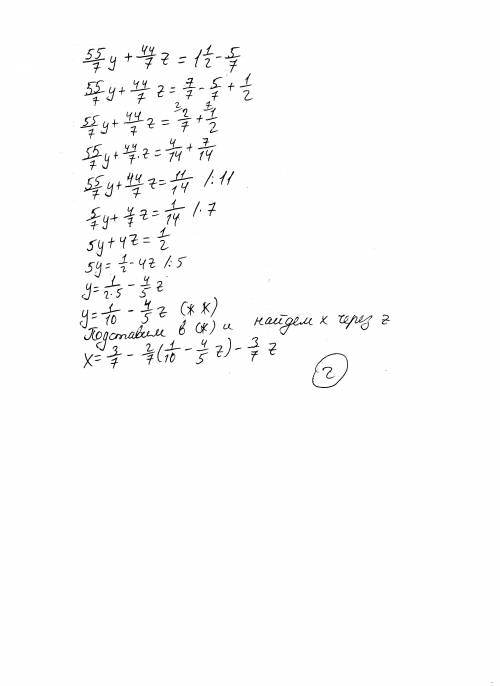 55/7 y + 44/7 z = 1 1/2 - 5/7
55/7 y + 44/7 z = 7/7 - 5/7 + 1/2
55/7 y + 44/7 z = ²2/7 + ⁷1/2
55/7 y + 44/7 · z = 4/14 + 7/14
55/7 y + 44/7 z = 11/14 /: 11
5/7 y + 4/7 z = 1/14 /· 7
5y + 4z = 1/2
5y = 1/2 - 4z /: 5
y = 1/(2·5) - 4/5 z
y = 1/10 - 4/5 z (* *)
Подставим в (*) и найдем x через z
x = 3/7 - 2/7 (1/10 - 4/5 z) - 3/7 z
2